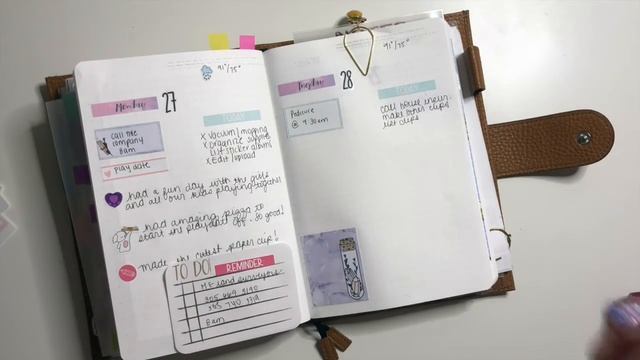 91°/75°
Monday
27
TODAY
call the
company
8am
play date
x vacuum/mopping
x organize supplies
list sticker albums
x Edit/upload
had a fun day with the girls
and all our kids playing together
had amazing pizza to
start the playdate off. so good!
made the cutest paper clip!
TO DO!
REMINDER
8am
NOTES
91°/75°
Tuesday
28
TODAY
Pedicure
@ 9:30am
call house insur.
make clips
list clips